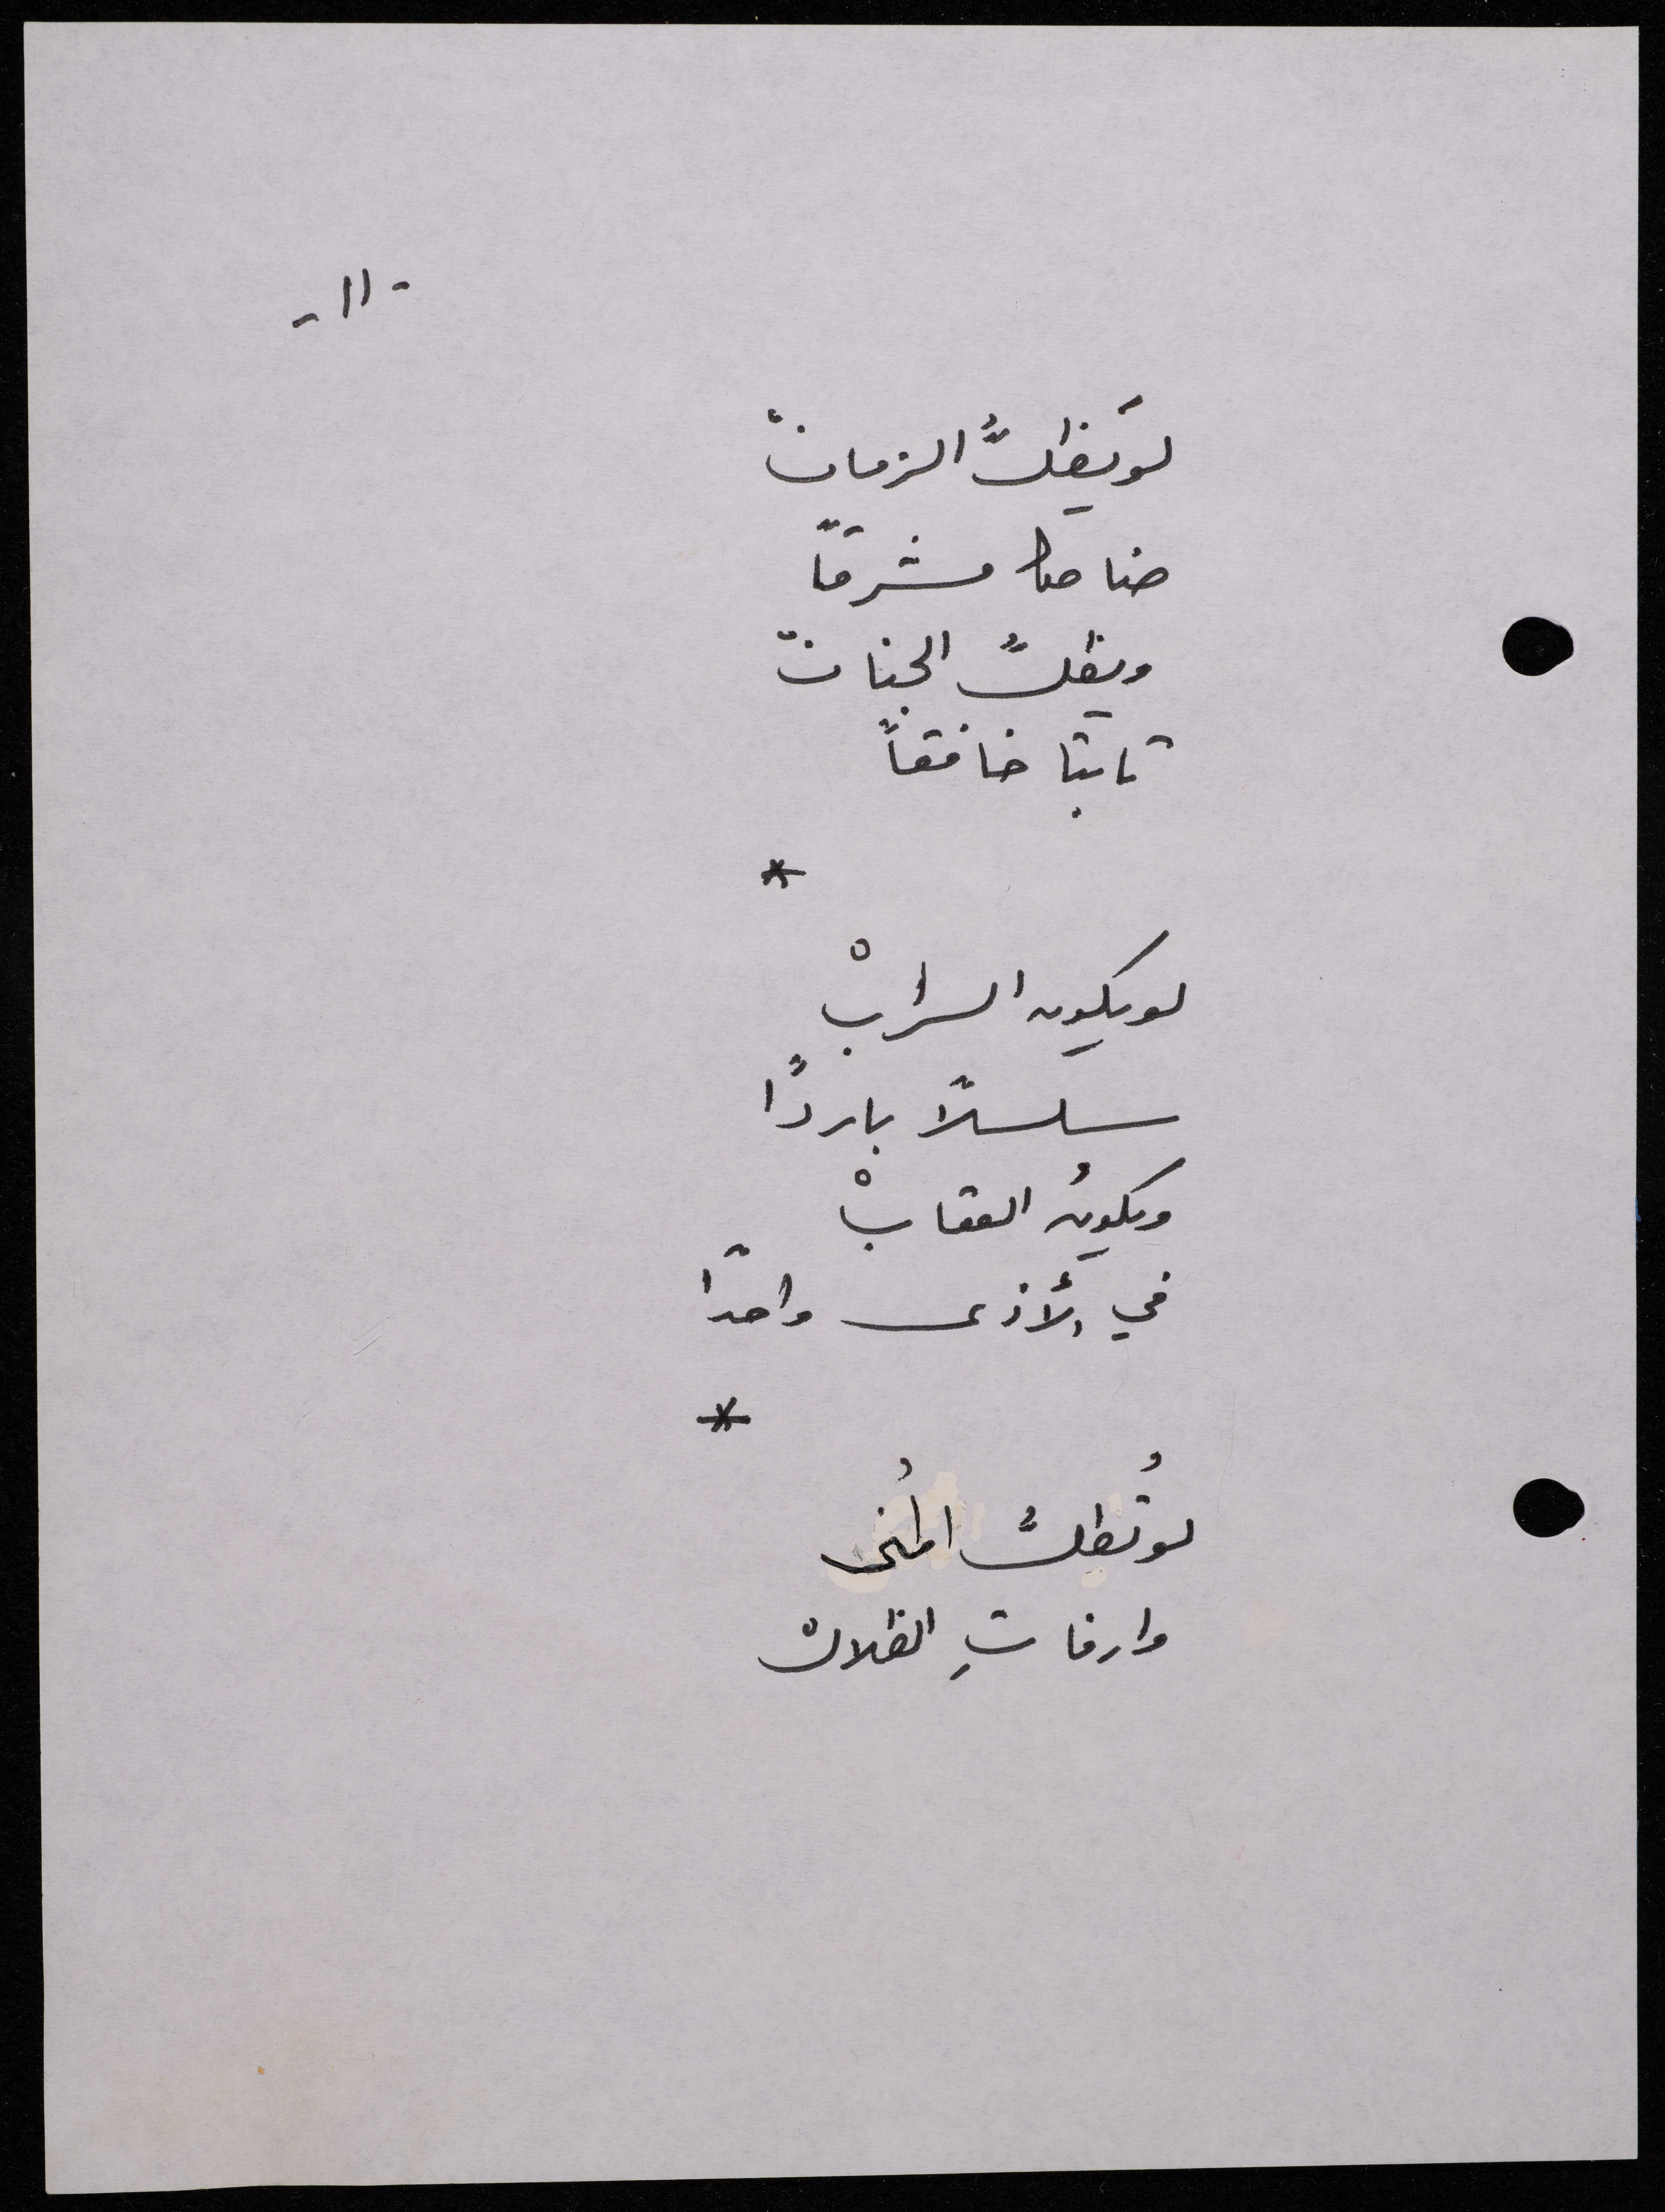 - ١١ -
لوَ يظلُّ الزمانْ
ضاحكا مشرقاً
ويظلُّ الجنانْ
ثابتا خافقاً
*
لو يكون السرابْ
سلسلاً باردًا
ويكونُ العقابْ
في الأذى واحدًا
*
لو تُظلُّ المُنى
وارفاتِ الظلالْ